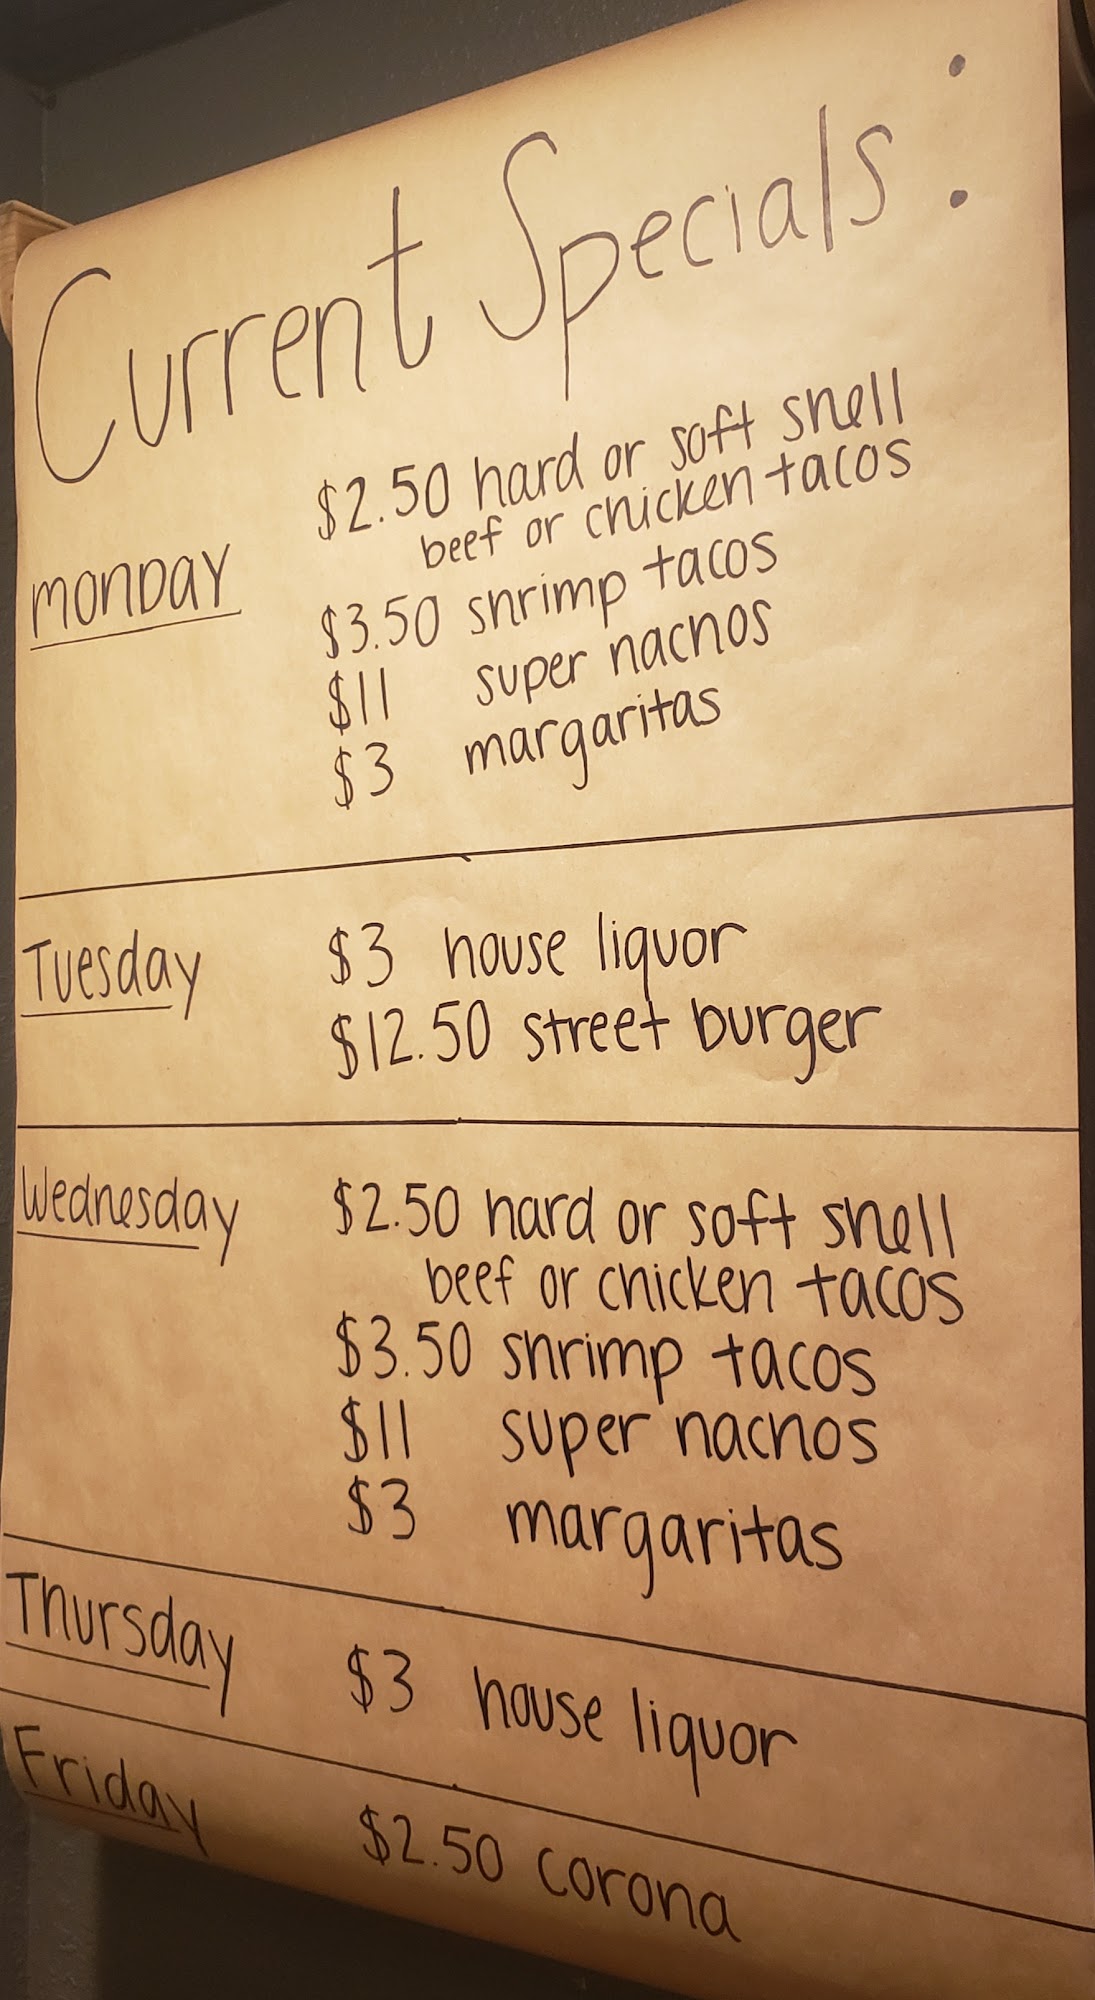 Current Specials:
MONDAY
$2.50 hard or soft shell
beef or chicken tacos
$3.50 shrimp tacos
$11 super nachos
$3 margaritas
Tuesday
$3 house liquor
$12.50 street burger
Wednesday
$2.50 hard or soft shell
beef or chicken tacos
$3.50 shrimp tacos
$11 super nachos
$3 margaritas
Thursday
$3 house liquor
Friday
$2.50 corona